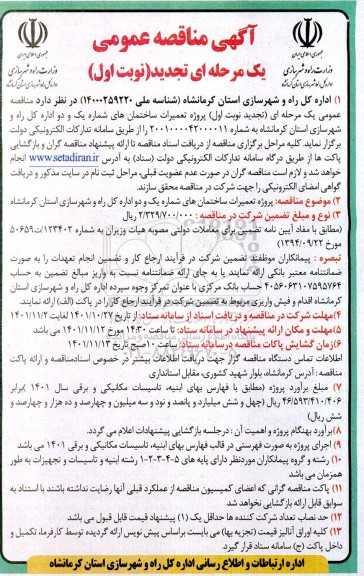 آگهی مناقصه عمومی
یک مرحله ای تجدید(نوبت اول)
وزارت راه و شهرسازی
وزارت راه و شهرسازی
۱) اداره کل راه و شهرسازی استان کرمانشاه (شناسه ملی ۱۴۰۰۰۲۵۹۲۲۰) در نظر دارد مناقصه
عمومی یک مرحله ای (تجدید نوبت اول) پروژه تعمیرات ساختمان های شماره یک و دو اداره کل راه و
شهرسازی استان کرمانشاه به شماره ۲۰۰۱۰۰۰۰۴۲۰۰۰۰۱۱ را از طریق سامانه تدارکات الکترونیکی دولت
برگزار نماید. کلیه مراحل برگزاری مناقصه از دریافت اسناد مناقصه تا ارائه پیشنهاد مناقصه گران و بازگشایی
پاکت ها از طریق درگاه سامانه تدارکات الکترونیکی دولت (ستاد) به آدرس www.setadiran.ir انجام
خواهد شد و لازم است مناقصه گران در صورت عدم عضویت قبلی، مراحل ثبت نام در سایت مذکور و دریافت
گواهی امضای الکترونیکی را جهت شرکت در مناقصه محقق سازند.
۲) موضوع مناقصه: پروژه تعمیرات ساختمان های شماره یک و دو اداره کل راه و شهرسازی استان کرمانشاه
۳) نوع و مبلغ تضمین شرکت در مناقصه : ۲/۳۲۹/۷۰۰/۰۰۰ ریال
(مطابق با مفاد آیین نامه تضمین برای معاملات دولتی مصوبه هیات وزیران به شماره ۱۲۳۴۰۲/ت۵۰۶۵۹
مورخ ۱۳۹۴/۰۹/۲۲)
تبصره : پیمانکاران موظفند تضمین شرکت در فرآیند ارجاع کار و تضمین انجام تعهدات را به صورت
ضمانتنامه معتبر بانکی ارائه نمایند یا به جای ارائه ضمانتنامه نسبت به واریز مبالغ تضمین به حساب
بانک مرکزی با عنوان تمرکز وجوه سپرده اداره کل راه و شهرسازی استان
کرمانشاه اقدام و فیش واریزی مربوط به تضمین شرکت در فرآیند ارجاع کار را در پاکت (الف) ارائه نمایند.
۴)مهلت شرکت در مناقصه و دریافت اسناد از سامانه ستاد: از تاریخ ۱۴۰۱/۱۰/۲۷ لغایت ۱۴۰۱/۱۱/۲
۵)مهلت و مکان ارائه پیشنهاد در سامانه ستاد: تا ساعت ۱۴:۳۰ مورخ ۱۴۰۱/۱۱/۱۲ می باشد
۶)زمان گشایش پاکات مناقصه در سامانه ستاد: ساعت ۱۰ صبح تاریخ ۱۴۰۱/۱۱/۱۳
اطلاعات تماس دستگاه مناقصه گزار جهت دریافت اطلاعات بیشتر در خصوص اسنادمناقصه و ارائه پاکت
مناقصه : آدرس کرمانشاه، بلوار شهید کشوری، مقابل استانداری
۷) مبلغ برآورد پروژه (مطابق با فهارس بهای ابنیه، تاسیسات مکانیکی و برقی سال ۱۴۰۱ )برابر
۴۶/۵۹۳/۴۱۰/۴۰۶ ریال (چهل و شش میلیارد و پانصد و نود و سه میلیون و چهارصد و ده هزار و چهارصد و
شش ریال)
۸)برآورد بهنگام پروژه و اهمیت آن : درجلسه بازگشایی پیشنهادات اعلام می گردد.
۹) اجرای پروژه به صورت فهرستی در قالب فهارس بهای ابنیه، تاسیسات مکانیکی و برقی ۱۴۰۱ می باشد
۱۰) رشته و گروه پیمانکاران موردنظر دارای پایه های ۵-۴-۳-۲-۱ رشته ابنیه و تاسیسات و تجهیزات به طور
همزمان می باشد
۱۱) پاکت مناقصه گرانی که اعضای کمیسیون مناقصه از عملکرد قبلی آنها رضایت نداشته باشند با استناد به
سوابق قابل ارائه بازگشایی نخواهد شد
۱۲) حد نصاب تعداد شرکت کننده ها حداقل یک (۱) پیشنهاد قیمت قابل قبول می باشد
۱۳) کلیه اوراق آنالیز قیمت (تجزیه بها) می بایست براساس پیش نویس ارائه گردیده توسط کارفرما، تکمیل و
داخل پاکت (ج) سامانه ستاد قرار گیرد.
اداره ارتباطات و اطلاع رسانی اداره کل راه و شهرسازی استان کرمانشاه